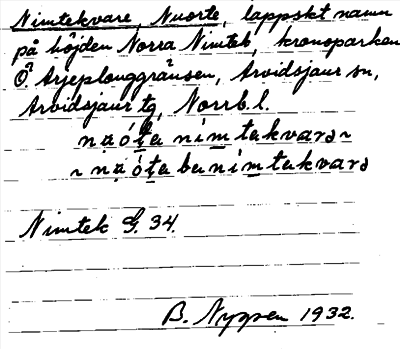 Nimtekvare, Nuorte, lappskt namn
på höjden Norra Nimtek, kronoparken
Ö. Arjeplouggränsen, Arvidsjaur sn,
Arvidsjaur tg, Norrb. l.
nạótɛ nimtɛkvarə ~
~ nạótɛ bɛnimtɛkvarə
Nimtek G. 34.
B. Nyppen 1932.